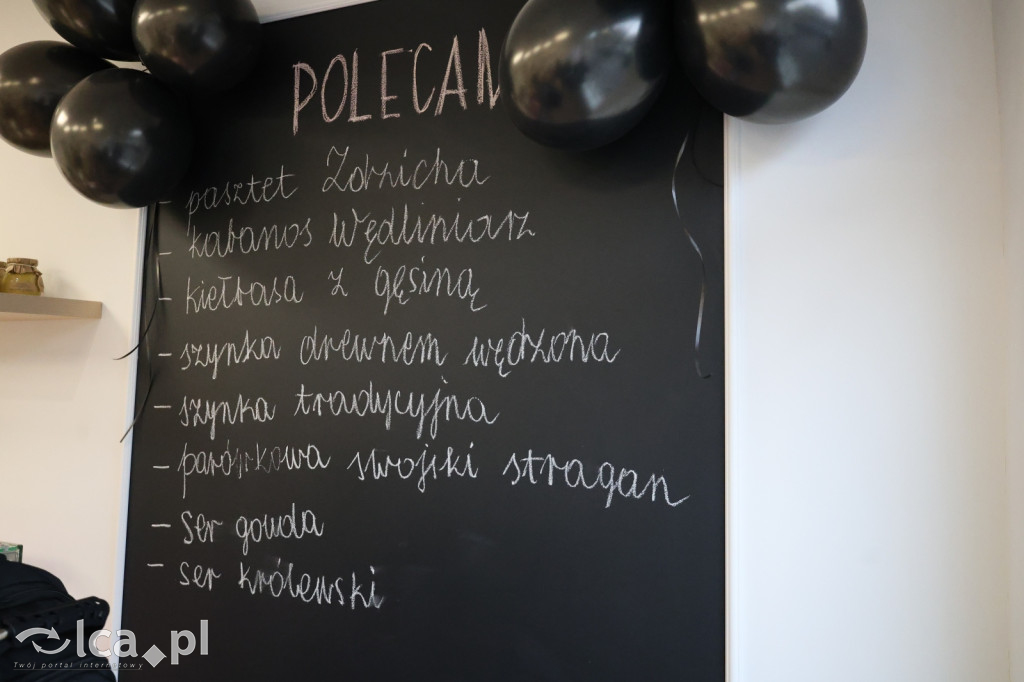 POLECAM
- pasztet Zdzicha
- kabanos Wędliniarz
- kiełbasa z gęsiną
- szynka drewnem wędzona
- szynka tradycyjna
- parówkowa swojski stragan
- ser gouda
- ser królewski
lca.pl
Twój portal internetowy